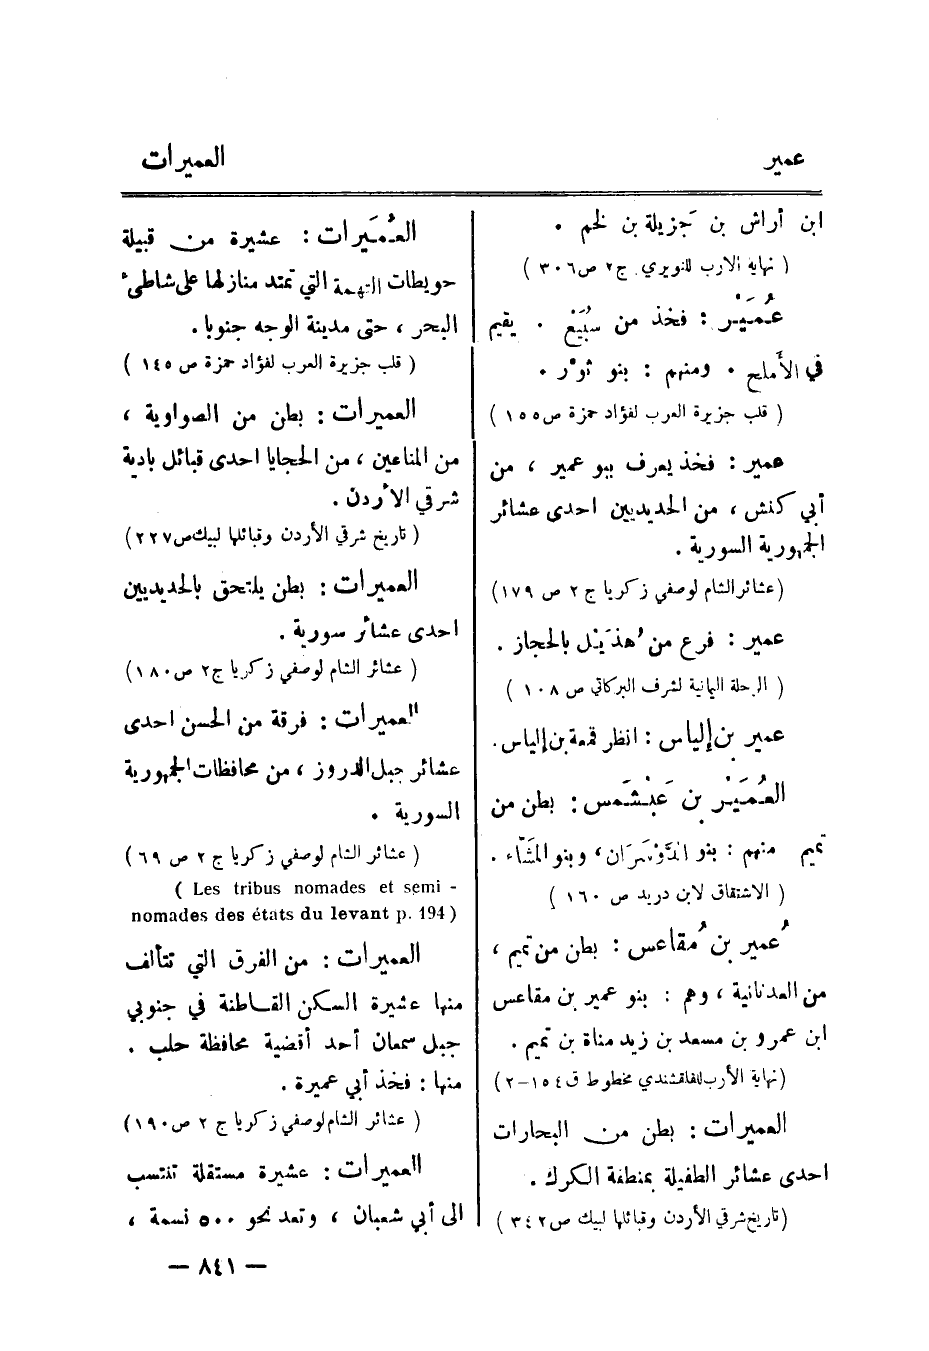 عمير
العميرات
ابن أراش بن جَزيلة بن لخم .
( نهاية الارب للنويري ج٢ ص٣٠٦ )
عُمَيْر : فخذ من سُبَيْع . يقيم
في الأَملح . ومنهم : بنو ثوْر .
( قلب جزيرة العرب لفؤاد حمزة ص١٥٥ )
عمير : فخذ يعرف ببو عمير ، من
أبي كنش ، من الحديديين احدى عشائر
الجمهورية السورية .
( عشائر الشام لوصفي زكريا ج ٢ ص ١٧٩)
عمير : فرع من هُذَيْل بالحجاز .
( الرحلة اليمانية لشرف البركاتي ص ١٠٨ )
عمير بن إلياس : انظر قمعة بن إلياس .
العُمَيْر بن عَبْشَمس : بطن من
تميم منهم : بنو الدَّوْسَران ، وبنو المشَّاء .
( الاشتقاق لابن دريد ص ١٦٠ )
عُمير بن مُقاعس : بطن من تميم ،
من العدنانية ، وهم : بنو عمير بن مقاعس
ابن عمرو بن مسعد بن زيد مناة بن تميم .
(نهاية الأرب للقلقشندي مخطوط ق١٥٤-٢)
العميرات : بطن من البحارات
احدى عشائر الطفيلة بمنطقة الكرك .
(تاريخ شرقي الأردن وقبائلها لبيك ص٣٤٢ )
العُمَيرات : عشيرة من قبيلة
حويطات التهمة التي تمتد منازلها على شاطىء
البحر ، حتى مدينة الوجه جنوبا .
( قلب جزيرة العرب لفؤاد حمزة ص ١٤٥ )
العميرات : بطن من الصواوية ،
من المناعين ، من الحجايا احدى قبائل بادية
شرقي الأردن .
( تاريخ شرقي الأردن وقبائلها لبيك ص٢٢٧)
العميرات : بطن يلتحق بالحديديين
احدى عشائر سورية .
( عشائر الشام لوصفي زكريا ج٢ ص١٨٠)
العميرات : فرقة من الحسن احدى
عشائر جبل الدروز ، من محافظات الجمهورية
السورية .
( عشائر الشام لوصفي زكريا ج ٢ ص ٦٩)
( Les tribus nomades et semi -
nomades des états du levant p. 194 )
العميرات : من الفرق التي تتألف
منها عشيرة السكن القاطنة في جنوبي
جبل سمعان أحد أقضية محافظة حلب .
منها : فخذ أبي عميرة .
( عشائر الشام لوصفي زكريا ج ٢ ص١٩٠)
العميرات : عشيرة مستقلة تنتسب
الى أبي شعبان ، وتعد نحو ٥٠٠ نسمة ،
— ٨٤١ —